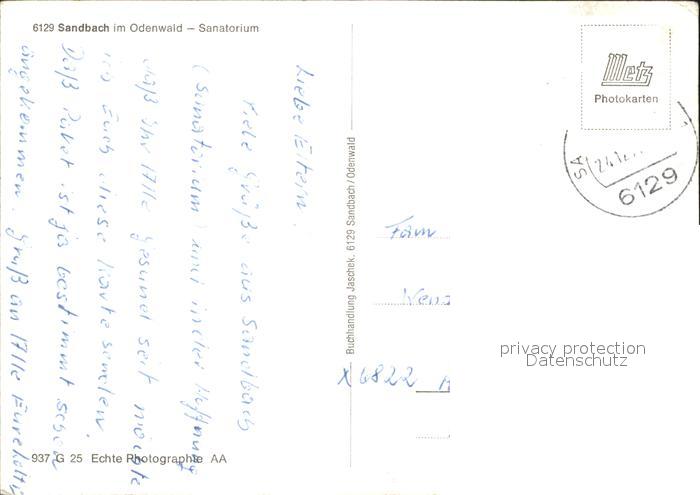 6129 Sandbach im Odenwald – Sanatorium
Liebe Eltern.
Viele Grüße aus Sandbach
(Sanatorium) und in der Hoffnung
daß Ihr Alle gesund seit möchte
ich Euch diese Karte senden.
Daß Paket ist ja bestimmt schon
angekommen. Gruß an Alle Eure
937 G 25 Echte Photographie AA
Buchhandlung Jaschek, 6129 Sandbach/Odenwald
Metz
Photokarten
SA
24.12.
6129
Fam
X 6822
privacy protection
Datenschutz